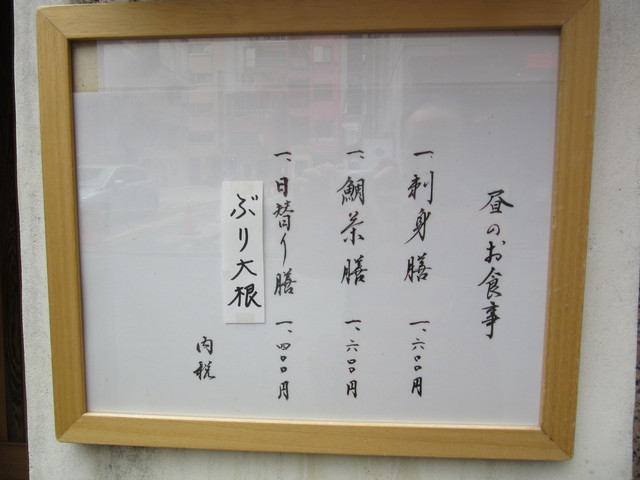 昼のお食事
一、刺身膳 一、六〇〇円
一、鯛茶膳 一、六〇〇円
一、日替り膳 一、四〇〇円
ぶり大根
内税